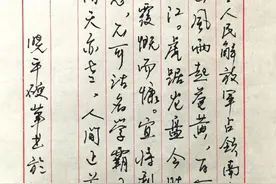 人民解放军占领南
山风雨起苍黄，百
江。虎踞龙盘今胜
覆慨而慷。宜将剩
寇，不可沽名学霸
情天亦老，人间正道
晓平硬笔书于